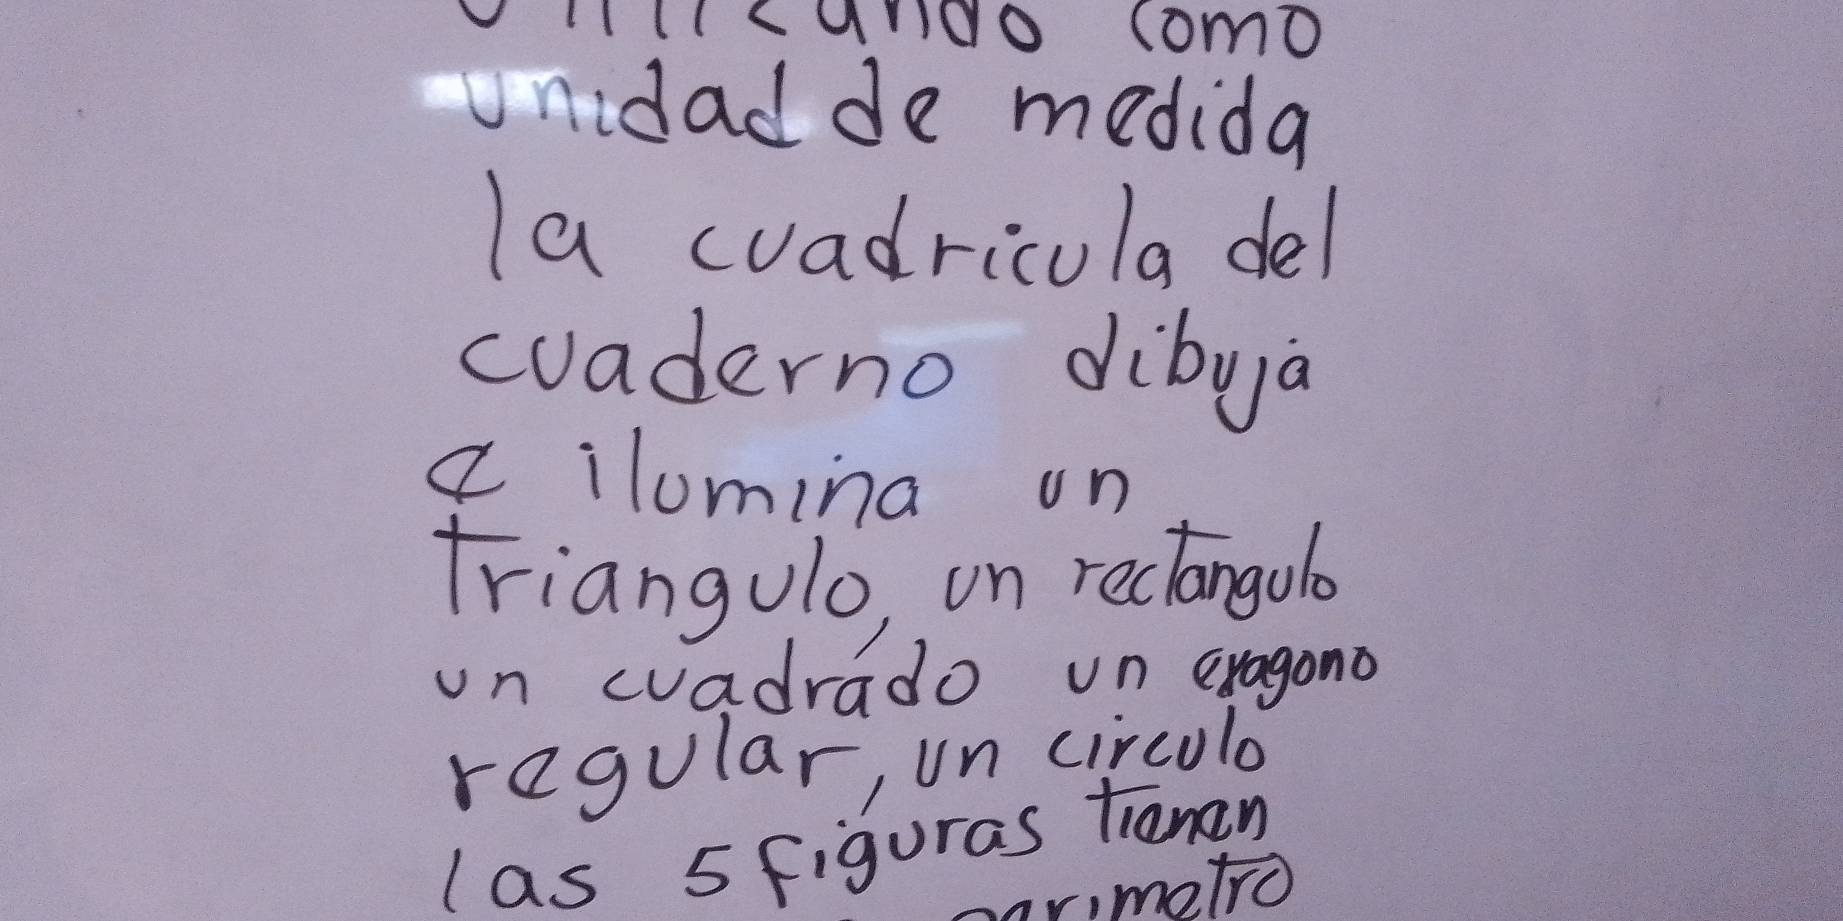 como
unidad de medida
la cuadricula del
cuaderno dibuja
e ilumina un
Triangulo, un rectangulo
un cuadrado un exagono
regular, un circulo
las 5 figuras tienen